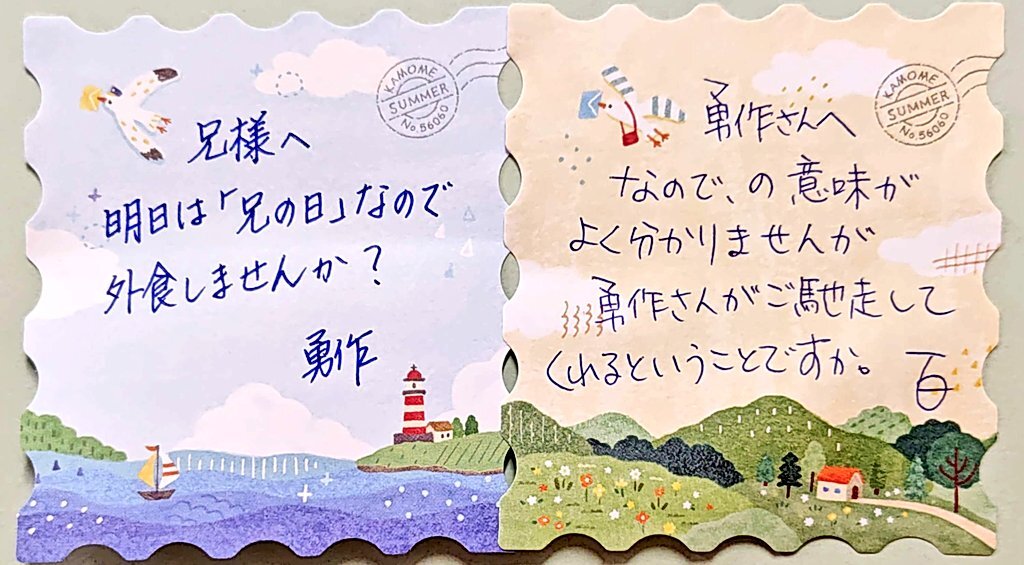 KAMOME
SUMMER
No.56060
兄様へ
明日は「兄の日」なので
外食しませんか？
勇作
KAMOME
SUMMER
No.56060
勇作さんへ
なので、の意味が
よく分かりませんが
勇作さんがご馳走して
くれるということですか。
百